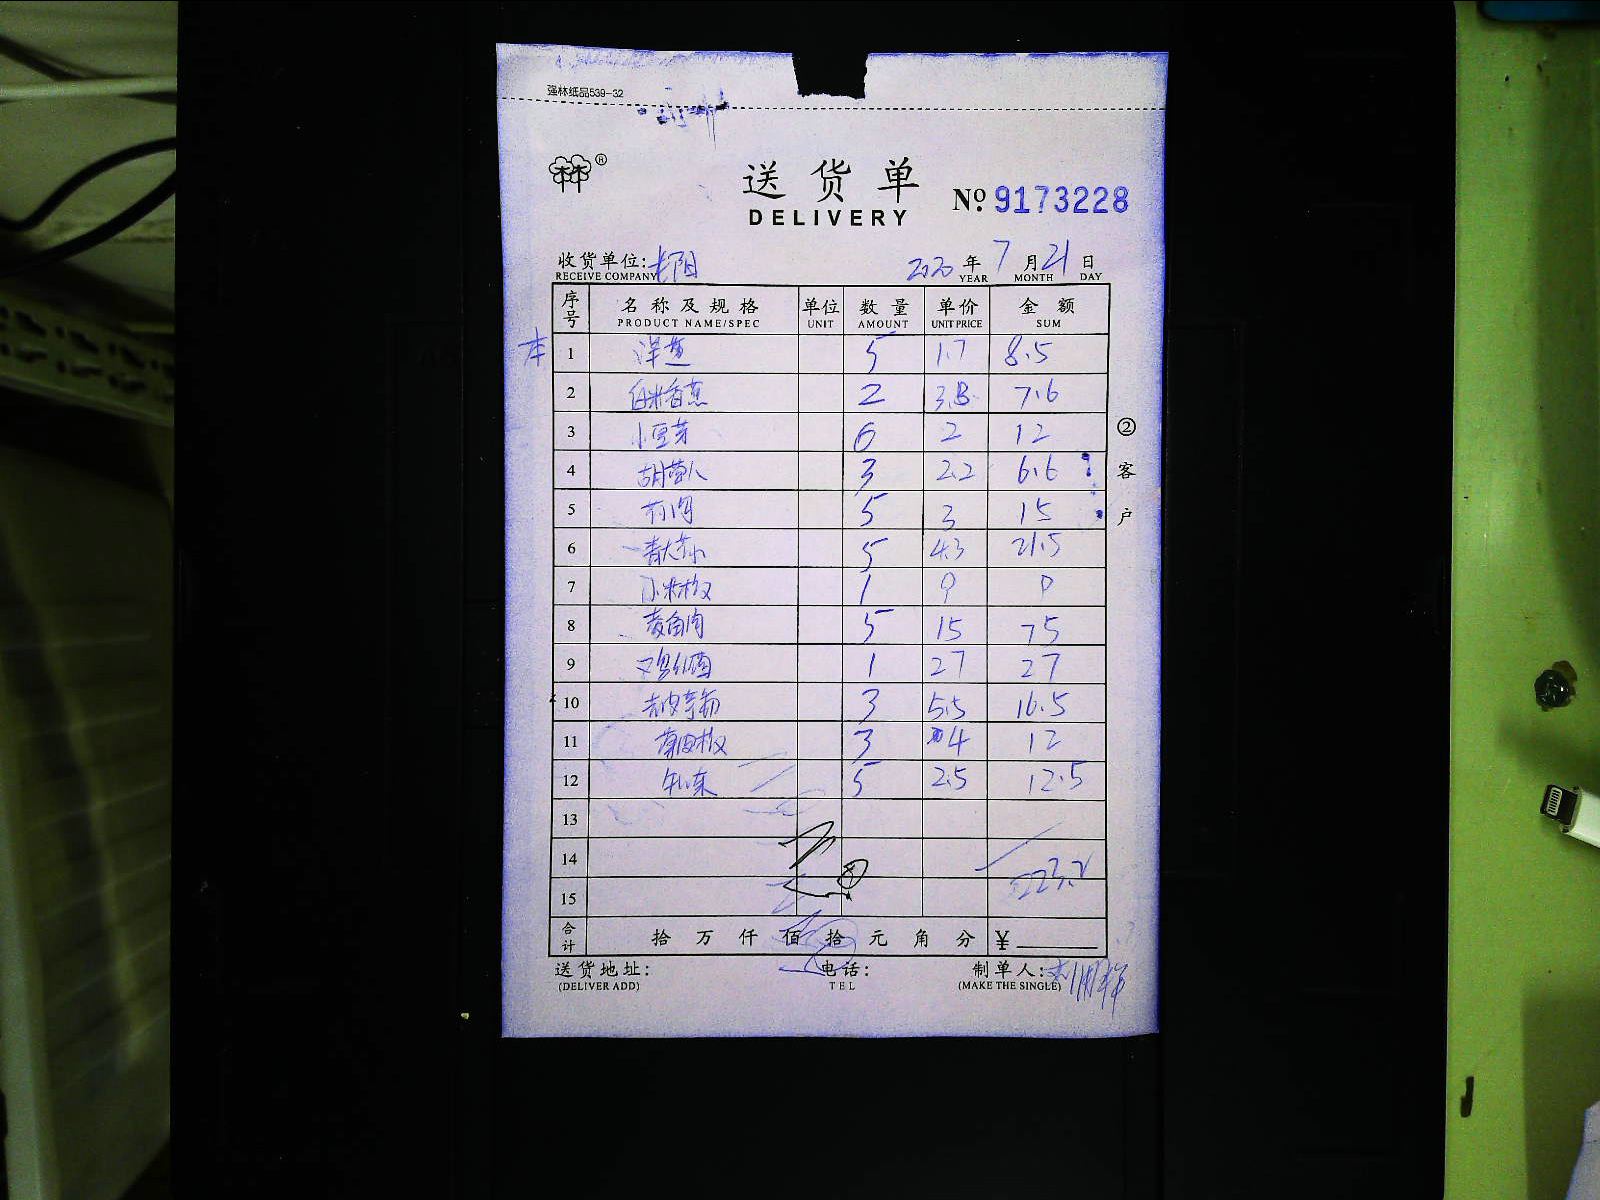 强林纸品539-32
林林 ®
送货单
DELIVERY
Nº 9173228
收货单位: 长阳 2020 年 7 月 21 日
RECEIVE COMPANY YEAR MONTH DAY
序号 名称及规格 单位 数量 单价 金额
PRODUCT NAME/SPEC UNIT AMOUNT UNIT PRICE SUM
本 1 洋葱 5 1.7 8.5
2 香蕉 2 3.8 7.6
3 小豆芽 6 2 12
4 胡萝卜 3 2.2 6.6
5 5 3 15
6 5 4.3 21.5
7 小米椒 1 9 9
8 菱角肉 5 15 75
9 1 27 27
10 3 5.5 16.5
11 3 4 12
12 5 2.5 12.5
13
14
223.2
15
合计 拾 万 仟 佰 拾 元 角 分 ¥
送货地址: 电话: 制单人:
(DELIVER ADD) TEL (MAKE THE SINGLE)
②客户